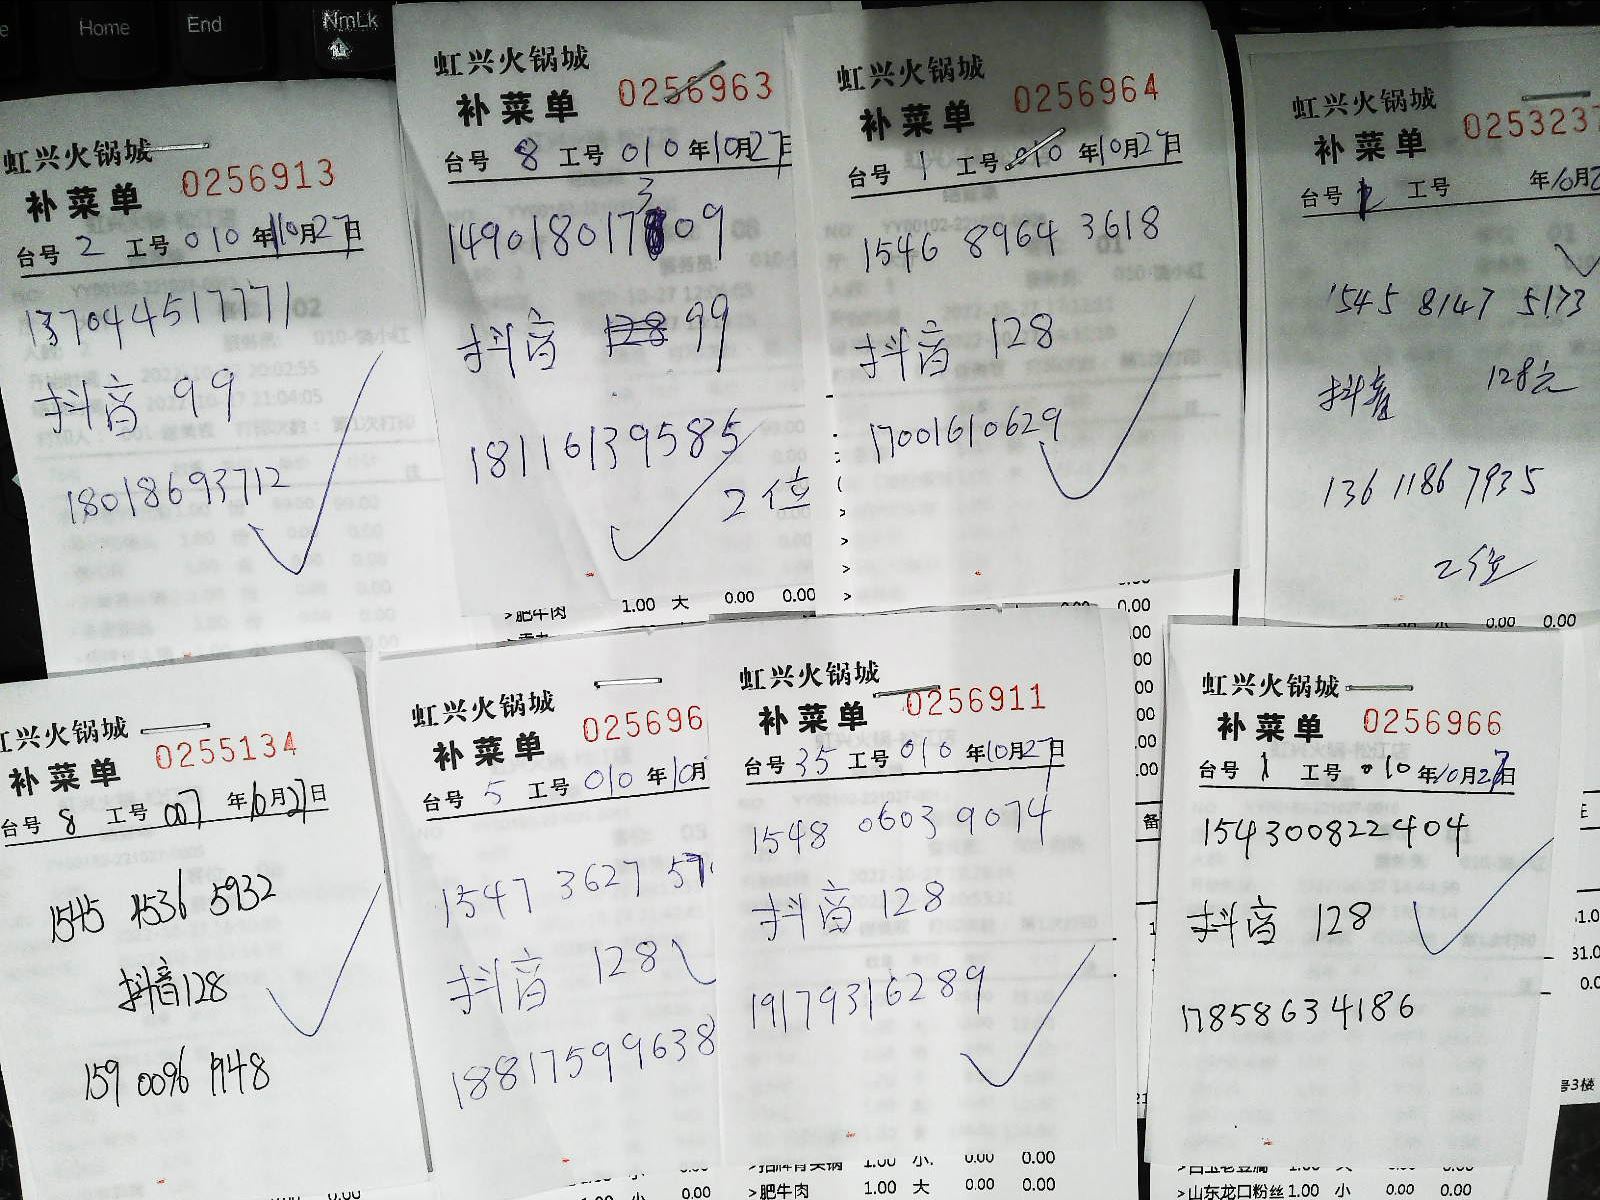 Home
End
NmLk
虹兴火锅城
补菜单 0256913
台号 2 工号 010 年10月27日
137044517771
抖音 99
18018693712
虹兴火锅城
补菜单 0256963
台号 8 工号 010 年10月27日
3
149018017809
抖音 128 99
18116139585
2位
>肥牛肉 1.00 大 0.00 0.00
虹兴火锅城
补菜单 0256964
台号 1 工号 010 年10月27日
1546 8964 3618
抖音 128
17001610629
虹兴火锅城
补菜单 0253237
台号 1 工号 年10月2
1545 8147 5173
抖音 128元
136 1186 7935
2位
0.00 0.00
虹兴火锅城
补菜单 0255134
台号 8 工号 007 年10月27日
1545 4536 5932
抖音128
159 0096 1948
虹兴火锅城
补菜单 025696
台号 5 工号 010 年10月
1547 3627 57
抖音 128
18817599638
虹兴火锅城
补菜单 0256911
台号 35 工号 010 年10月27日
1548 0603 9074
抖音 128
19179316289
>招牌骨头锅 1.00 小 0.00 0.00
>肥牛肉 1.00 大 0.00 0.00
虹兴火锅城
补菜单 0256966
台号 1 工号 010 年10月27日
154300822404
抖音 128
17858634186
备
号3楼
>白玉老豆腐 1.00 大 0.00 0.00
>山东龙口粉丝 1.00 小 0.00 0.00